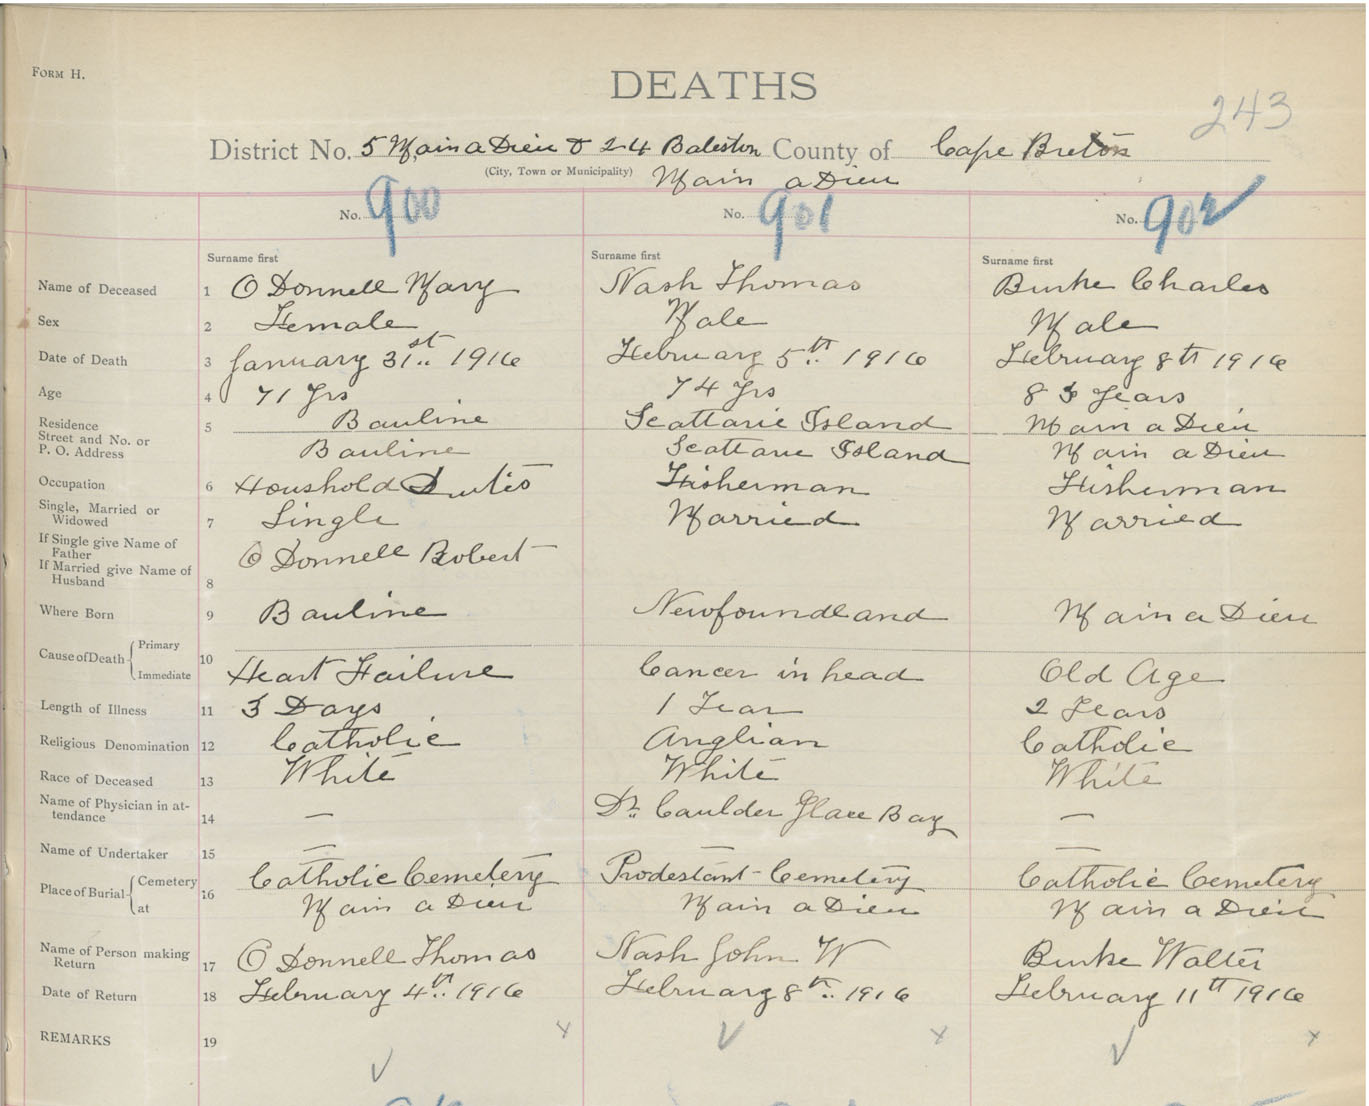 FORM H.
DEATHS
243
District No. 5 Main a Dieu & 24 Baleston County of Cape Breton
(City, Town or Municipality) Main a Dieu
No. 900 No. 901 No. 902
Surname first Surname first Surname first
Name of Deceased 1 O Donnell Mary Nash Thomas Burke Charles
Sex 2 Female Male Male
Date of Death 3 January 31st 1916 February 5th 1916 February 8th 1916
Age 4 71 Yrs 74 Yrs 83 Years
Residence 5 Bauline Scattarie Island Main a Dieu
Street and No. or
P. O. Address Bauline Scattarie Island Main a Dieu
Occupation 6 Houshold Duties Fisherman Fisherman
Single, Married or
Widowed 7 Single Married Married
If Single give Name of
Father O Donnell Robert
If Married give Name of
Husband 8
Where Born 9 Bauline Newfoundland Main a Dieu
Cause of Death Primary
Immediate 10 Heart Failure Cancer in head Old Age
Length of Illness 11 3 Days 1 Year 2 Years
Religious Denomination 12 Catholic Anglian Catholic
Race of Deceased 13 White White White
Name of Physician in at-
tendance 14 — Dr. Caulder Glace Bay —
Name of Undertaker 15 — — —
Place of Burial Cemetery 16 Catholic Cemetery Prodestant Cemetery Catholic Cemetery
at Main a Dieu Main a Dieu Main a Dieu
Name of Person making
Return 17 O Donnell Thomas Nash John W Burke Walter
Date of Return 18 February 4th 1916 February 8th 1916 February 11th 1916
REMARKS 19